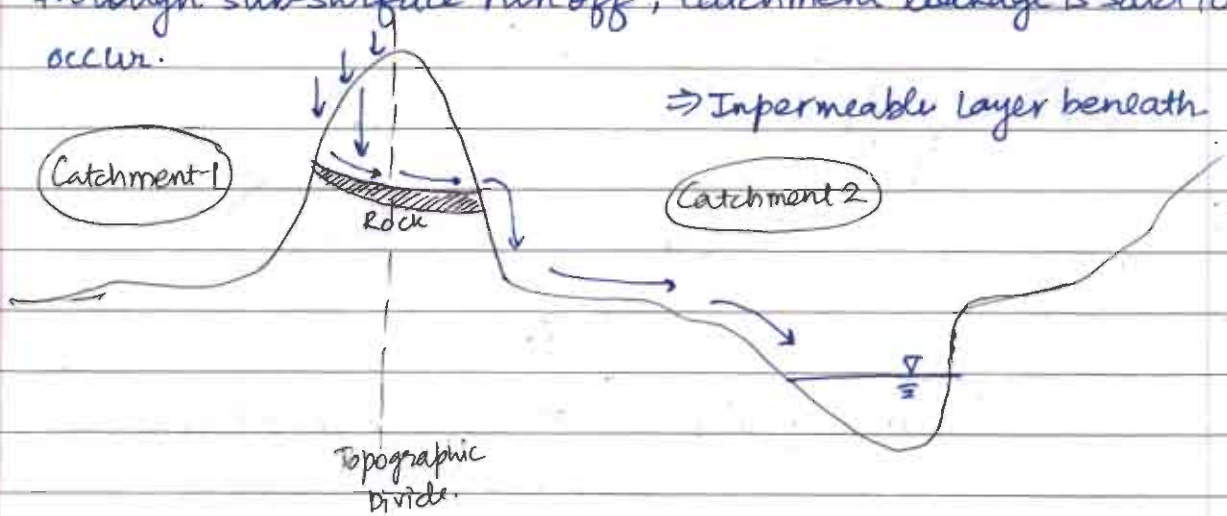 through sub-surface run off, catchment leakage is said to
occur.
⇒ Inpermeable Layer beneath
Catchment-1
Catchment 2
Rock
Topographic
Divide.